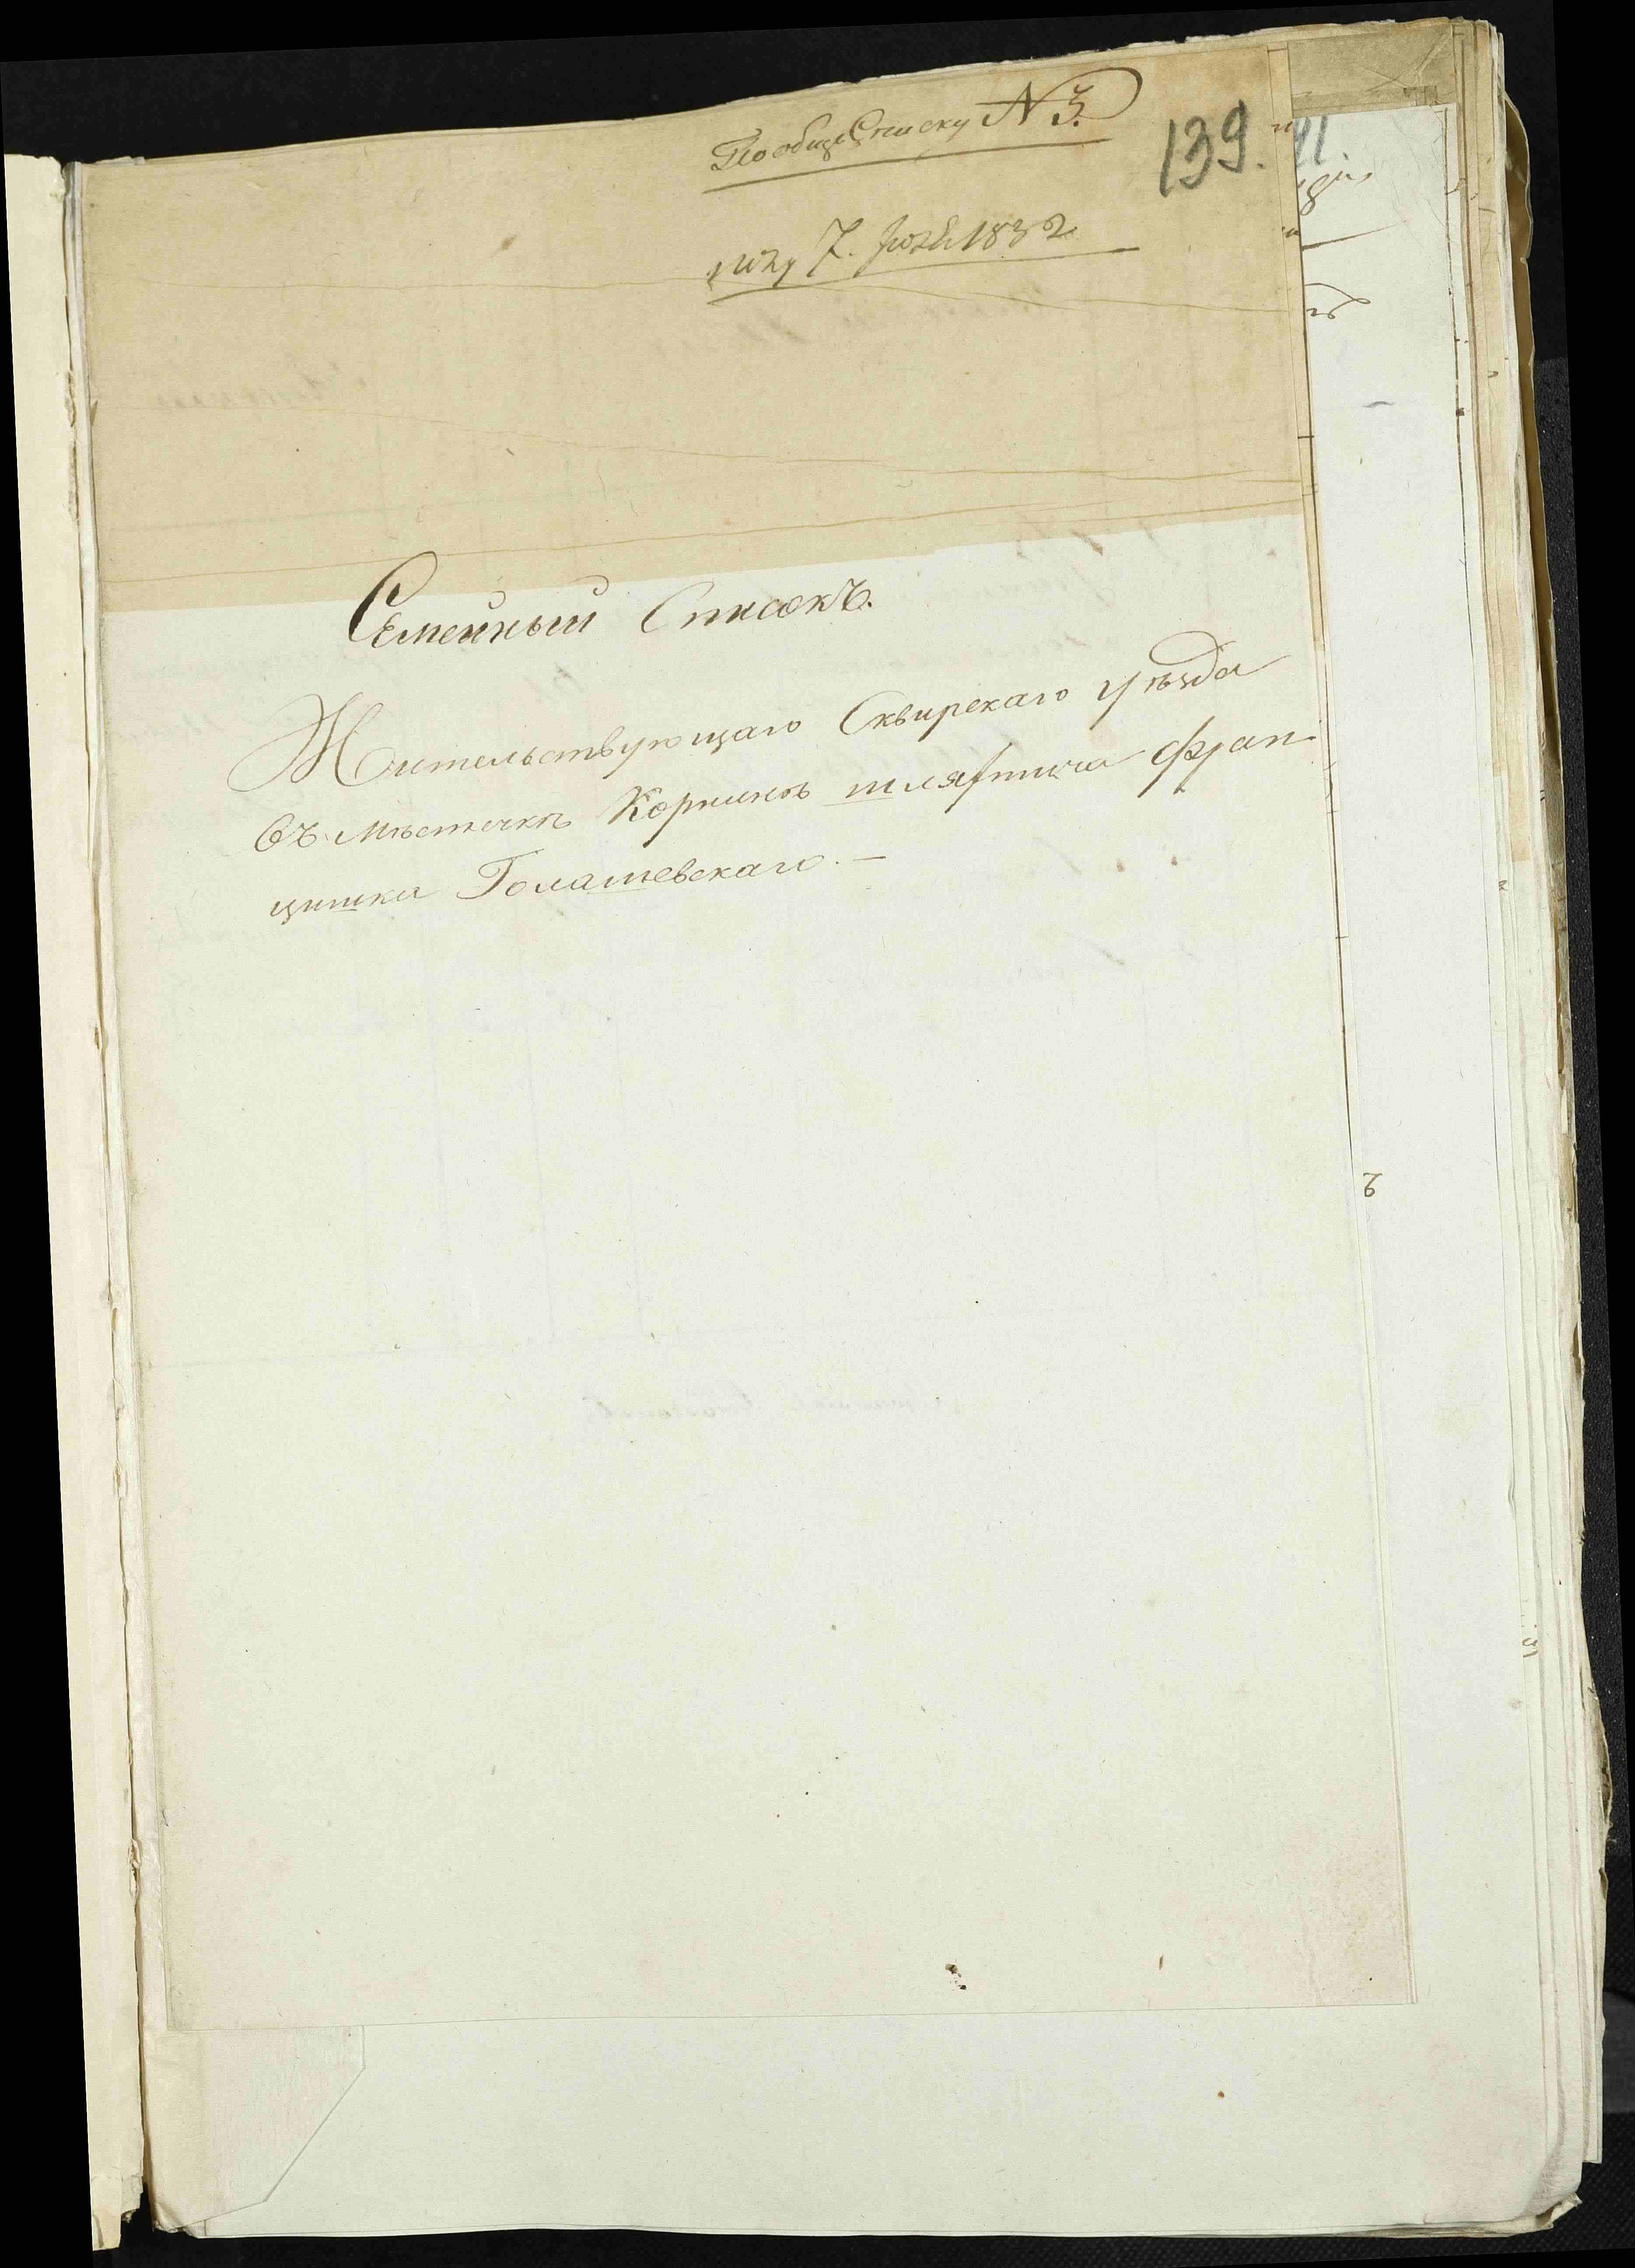 По обще Списку N 3.
139.
7. 1832
Семейный Списокъ.
Жительствующаго Сквирскаго уѣзда
въ мѣстечкѣ Корнинѣ шляхтича Фран-
цишка Голашевскаго. —